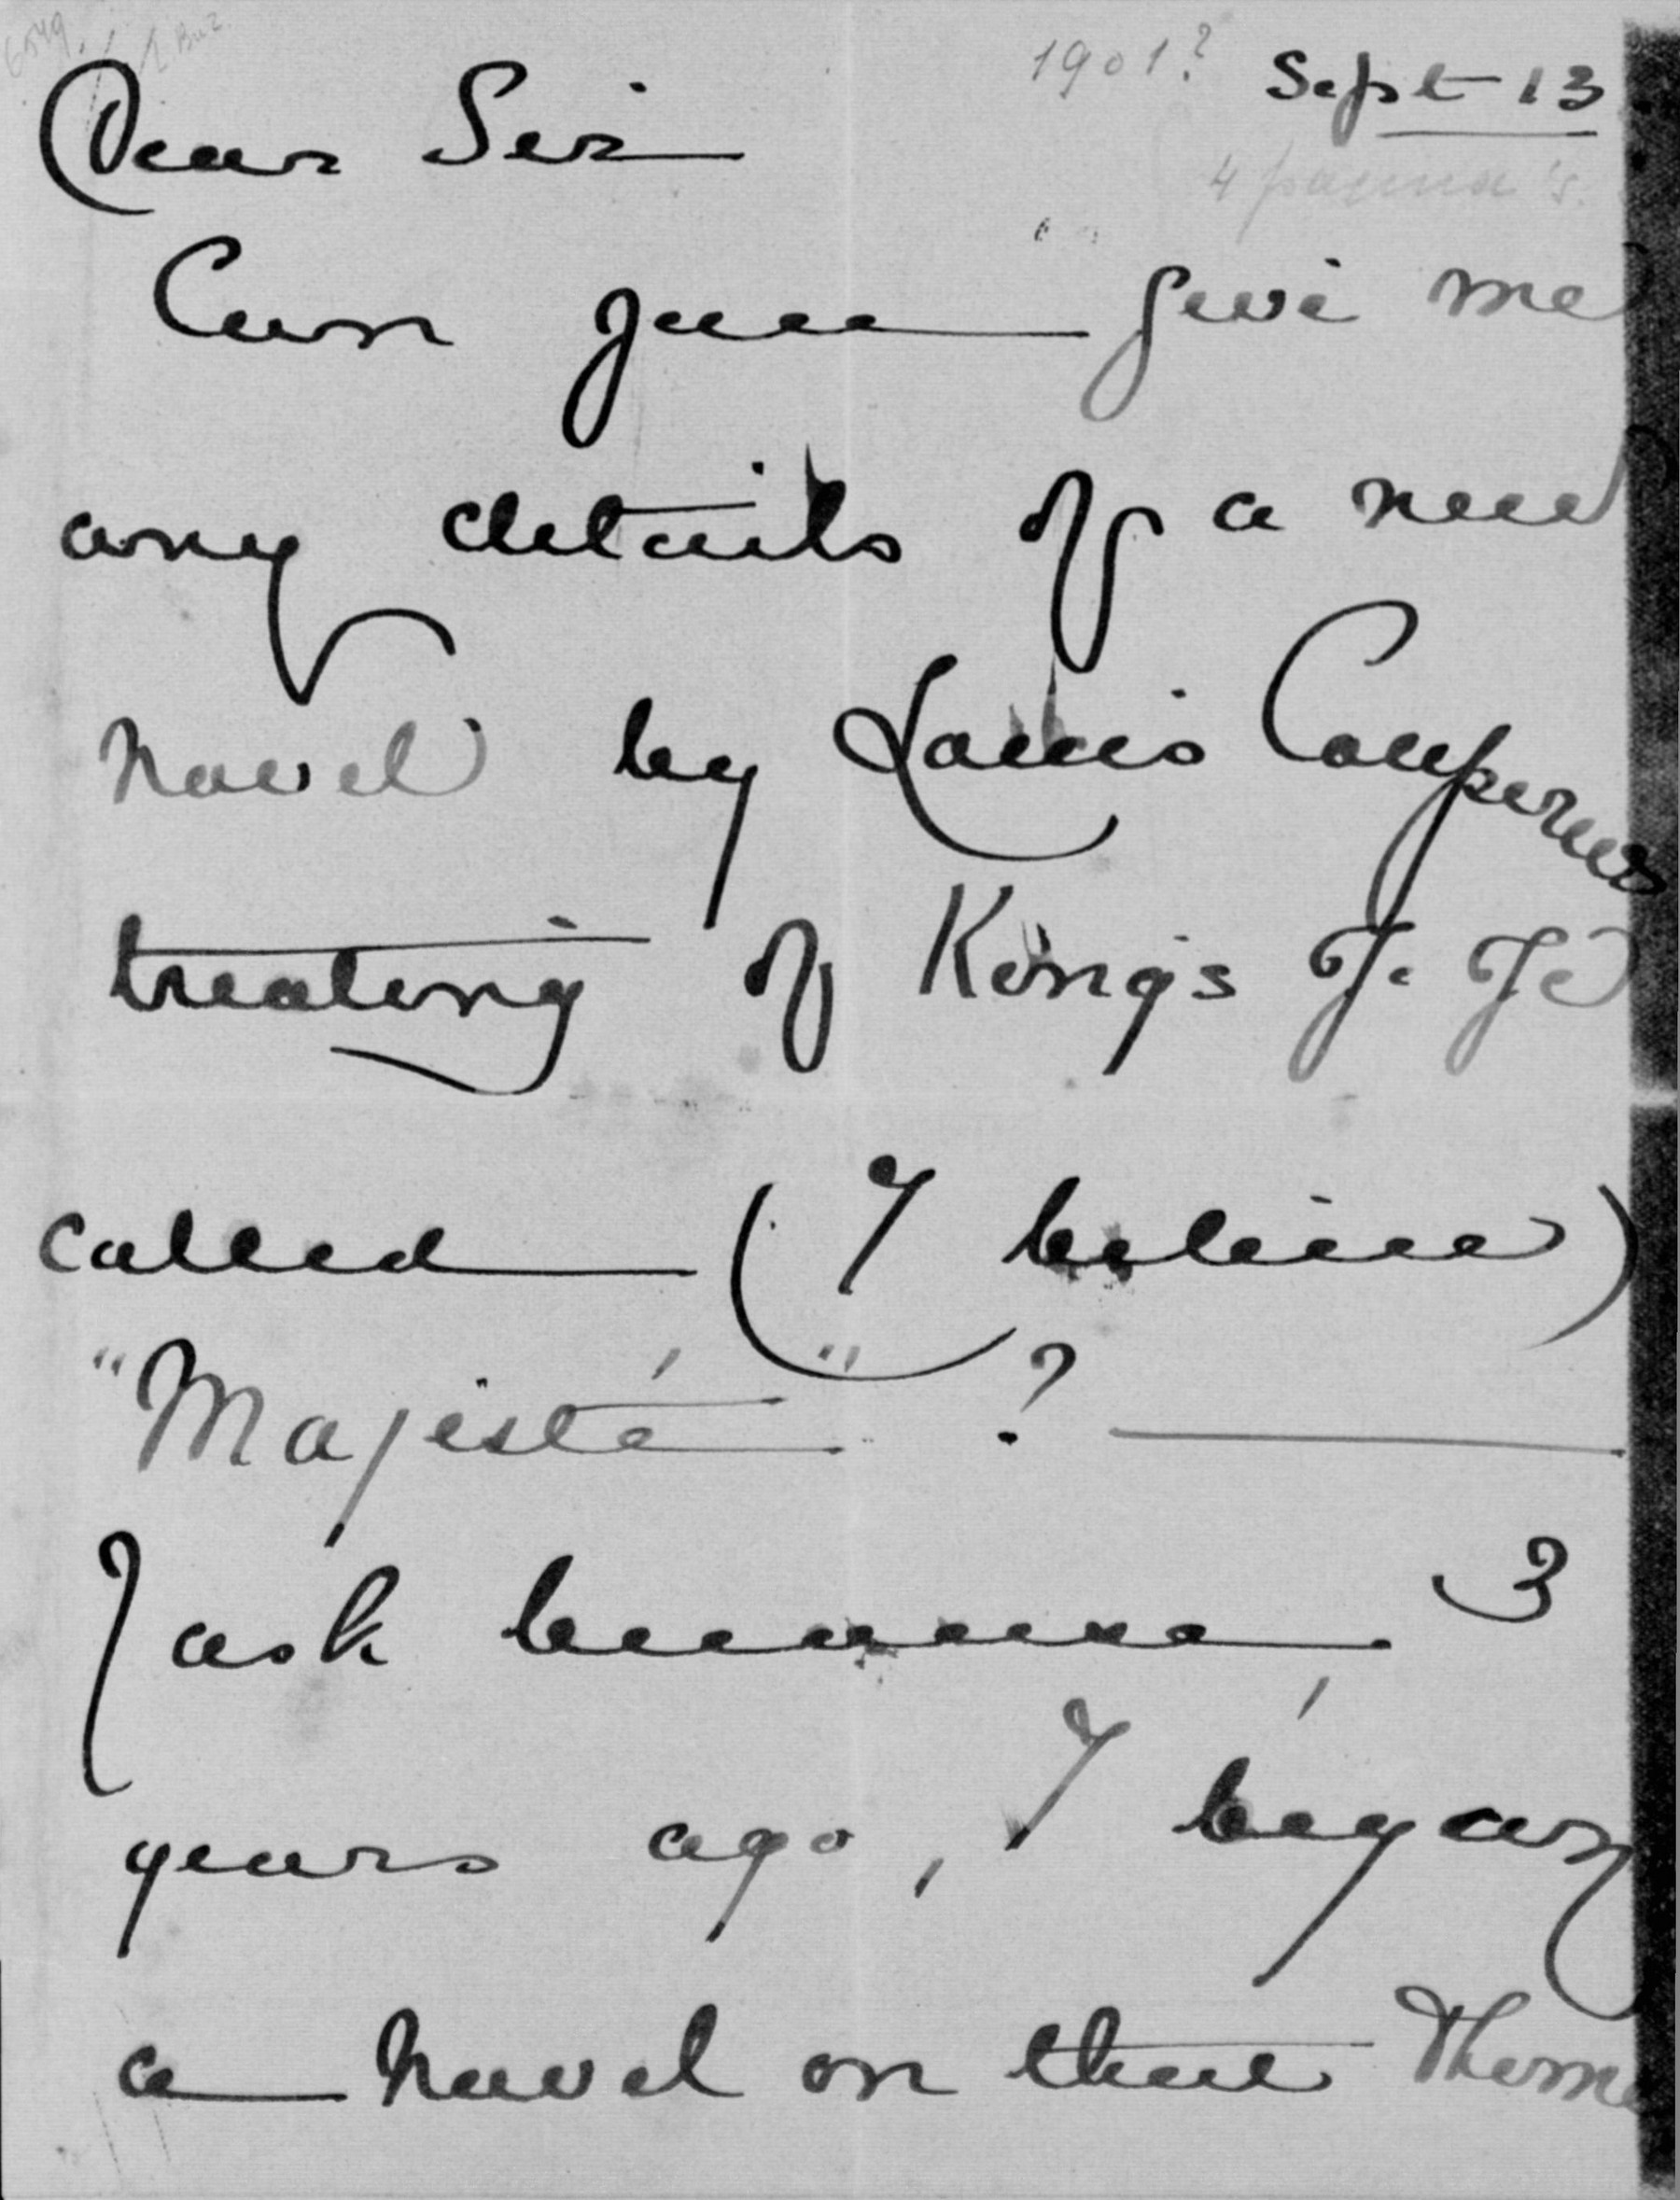 1901? Sept 13
Dear Sir
4 pagina's.
Can you give me
any details of a new
novel by Louis Couperus
treating of Kings &c &c
called (I believe)
"Majesté" ?
I ask because, 3
years ago, I began
a novel on that Theme